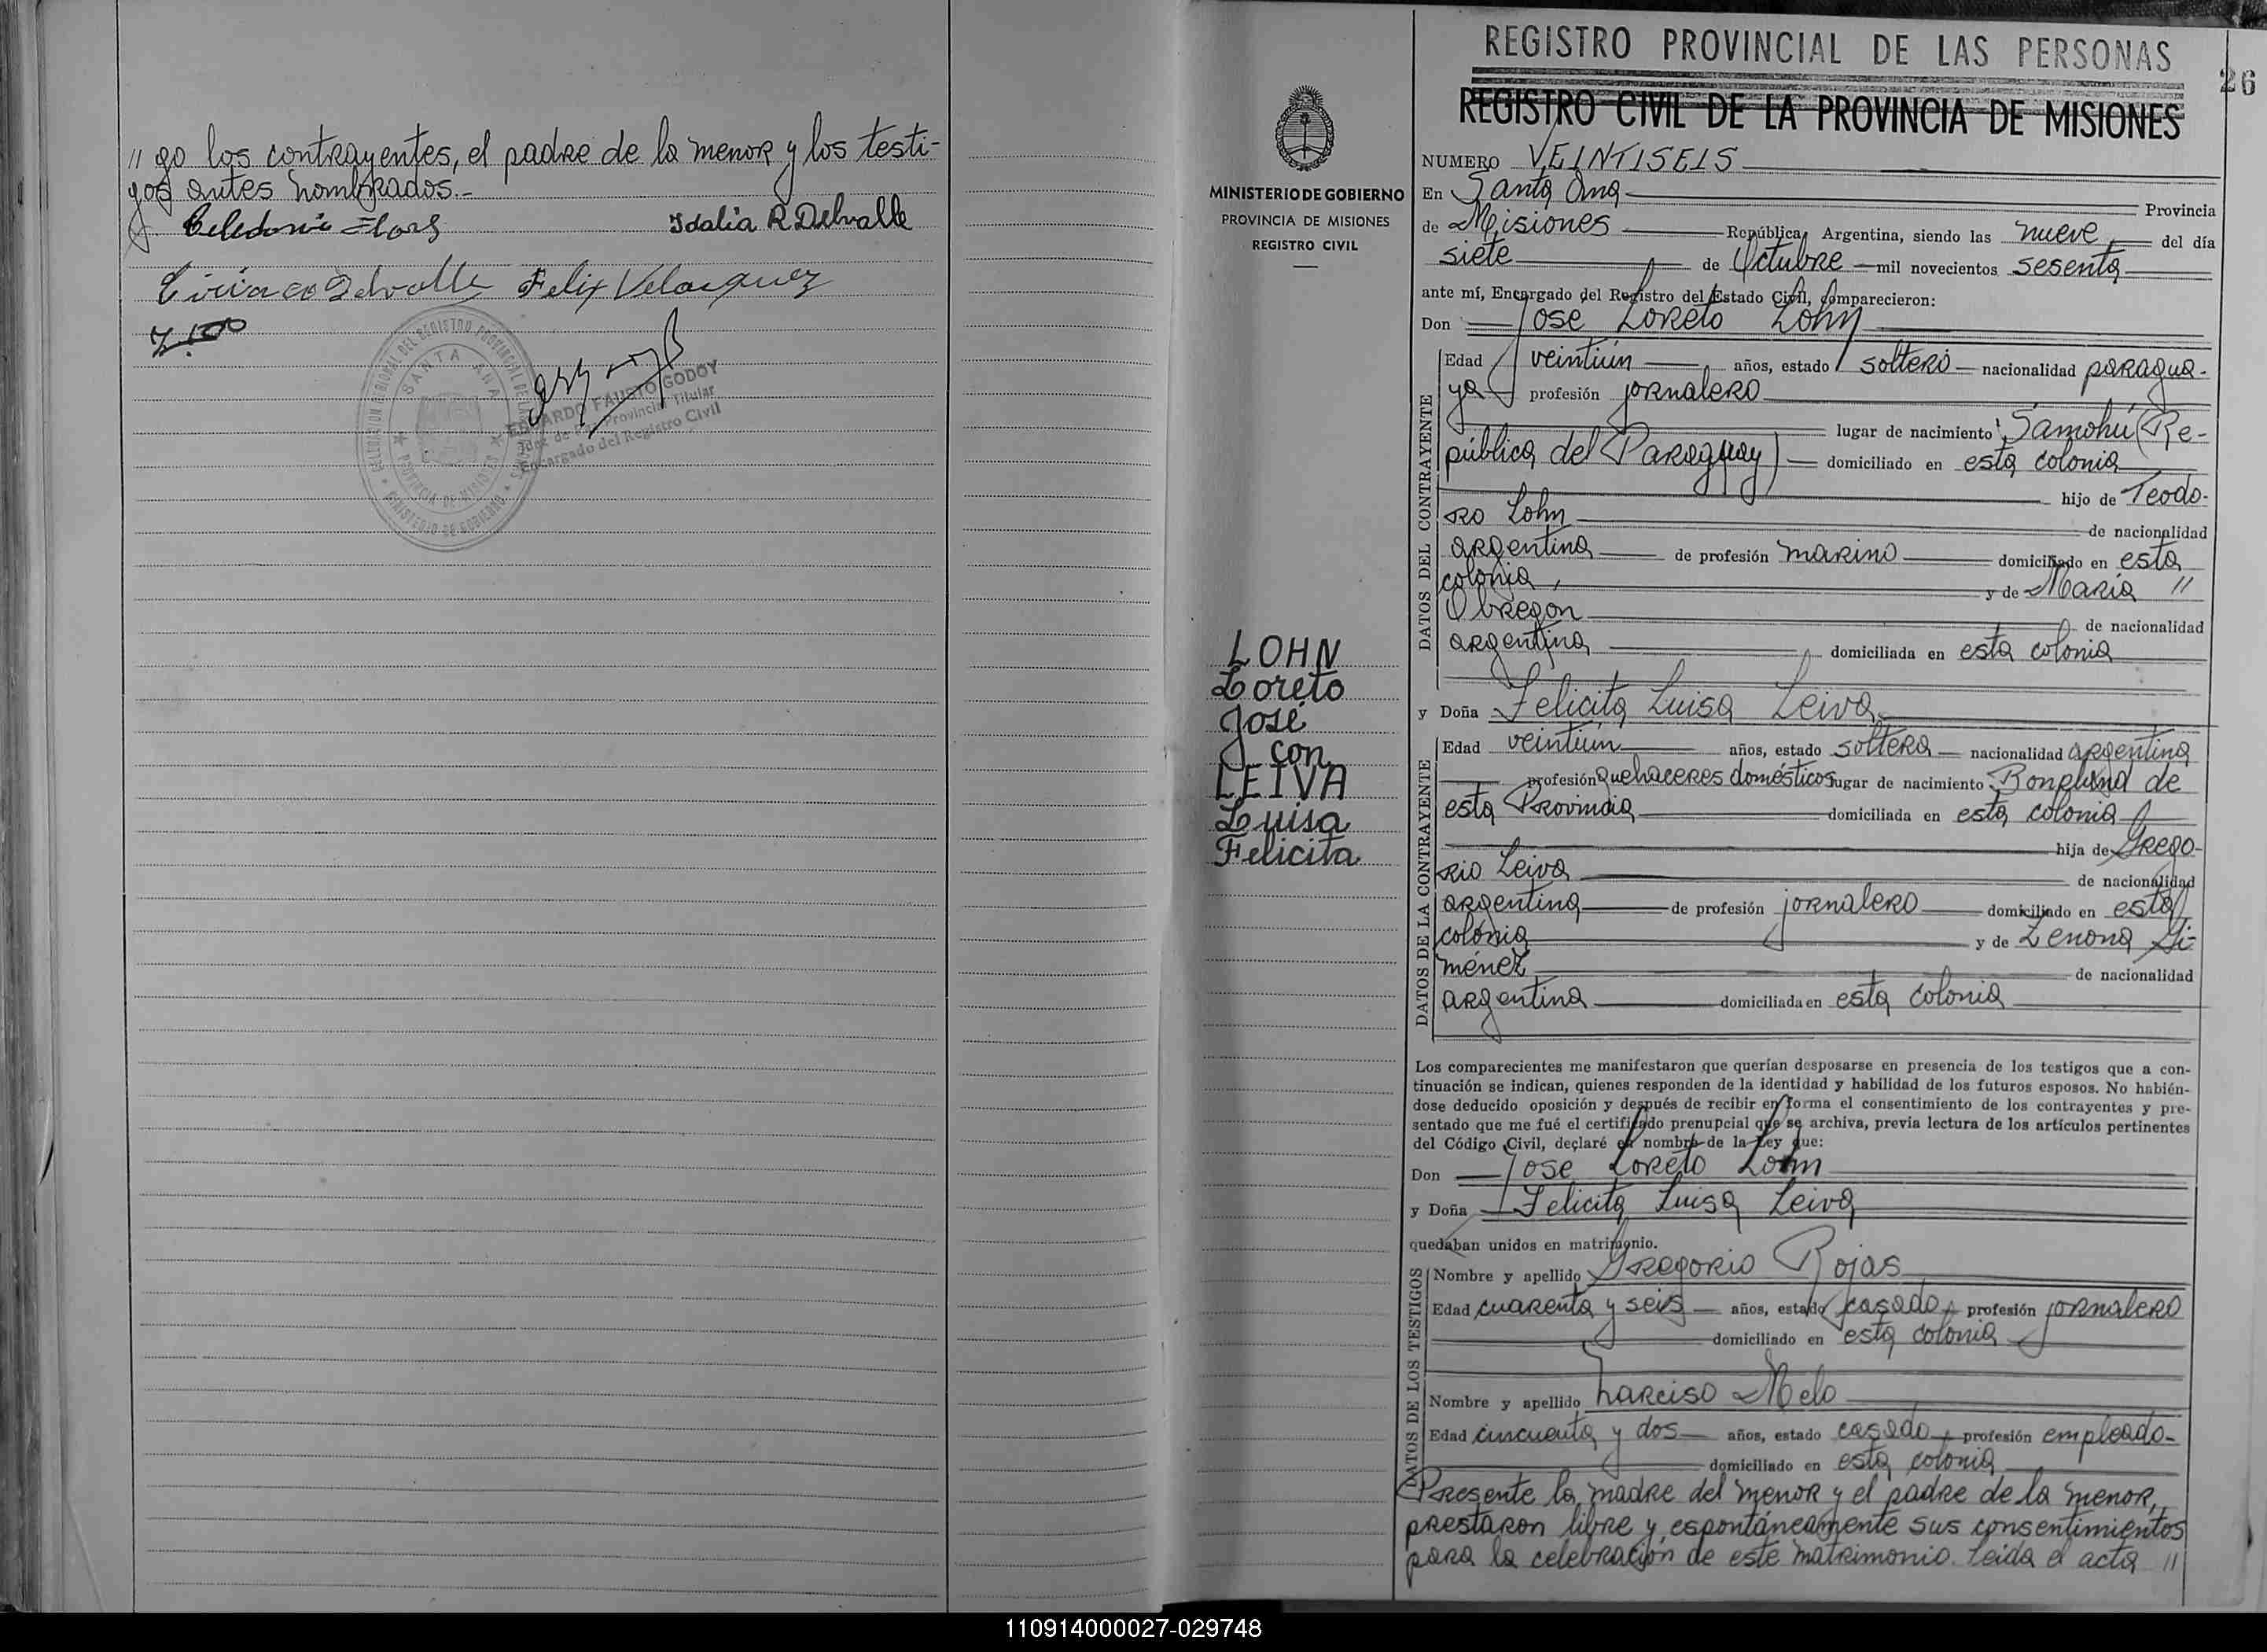 // go los contrayentes, el padre de la menor y los testi-
gos antes nombrados.-
Idalia R. Delvalle
Ciriaco Delvalle Felix Velasquez
DELEGACION REGIONAL DEL REGISTRO PROVINCIAL DE LAS PERSONAS
SANTA ANA
PROVINCIA DE MISIONES
MINISTERIO DE GOBIERNO
EDUARDO FAUSTO GODOY
Juez de Paz Provincial Titular
Encargado del Registro Civil
MINISTERIO DE GOBIERNO
PROVINCIA DE MISIONES
REGISTRO CIVIL
LOHN
Loreto
José
con
LEIVA
Luisa
Felicita
REGISTRO PROVINCIAL DE LAS PERSONAS
26
REGISTRO CIVIL DE LA PROVINCIA DE MISIONES
NUMERO VEINTISEIS
En Santa Ana Provincia
de Misiones República Argentina, siendo las nueve, del día
siete de Octubre mil novecientos sesenta
ante mí, Encargado del Registro del Estado Civil, comparecieron:
Don Jose Loreto Lohn
DATOS DEL CONTRAYENTE
Edad veintiún años, estado soltero nacionalidad paragua-
ya profesión jornalero
lugar de nacimiento Samohú (Re-
pública del Paraguay) domiciliado en esta colonia
hijo de Teodo-
ro Lohn de nacionalidad
argentina de profesión marino domiciliado en esta
colonia, y de María //
Obregón de nacionalidad
argentina domiciliada en esta colonia
y Doña Felicita Luisa Leiva
DATOS DE LA CONTRAYENTE
Edad veintiún años, estado soltera nacionalidad argentina
profesión quehaceres domésticos lugar de nacimiento Bonpland de
esta Provincia domiciliada en esta colonia
hija de Grego-
rio Leiva de nacionalidad
argentina de profesión jornalero domiciliado en esta
colonia y de Zenona Gi-
ménez de nacionalidad
argentina domiciliada en esta colonia
Los comparecientes me manifestaron que querían desposarse en presencia de los testigos que a con-
tinuación se indican, quienes responden de la identidad y habilidad de los futuros esposos. No habién-
dose deducido oposición y después de recibir en forma el consentimiento de los contrayentes y pre-
sentado que me fué el certificado prenupcial que se archiva, previa lectura de los artículos pertinentes
del Código Civil, declaré en nombre de la Ley que:
Don Jose Loreto Lohn
y Doña Felicita Luisa Leiva
quedaban unidos en matrimonio.
DATOS DE LOS TESTIGOS
Nombre y apellido Gregorio Rojas
Edad cuarenta y seis años, estado casado, profesión jornalero
domiciliado en esta colonia
Nombre y apellido Narciso Melo
Edad cincuenta y dos años, estado casado, profesión empleado-
domiciliado en esta colonia
Presente la madre del menor y el padre de la menor,
prestaron libre y espontáneamente sus consentimientos
para la celebración de este matrimonio. Leida el acta //
110914000027-029748